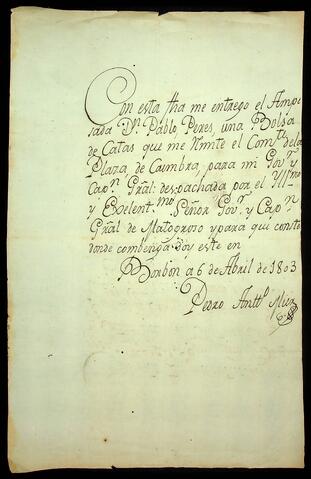 Con esta fha me entrego el Ampe
sada Dn. Pablo Peres, una Bolsa
de Catas que me Rmite el Comte. dela
Plaza de Cuimbra, para mi Govr. y
Capn. Gral: despachada por el Illmo
y Exelentmo. Señor Govr. y Capn
Gral de Matogroso y para qui conste
donde combenga doy este en
Borbon a 6 de Abril de 1803
Pedro Antto.